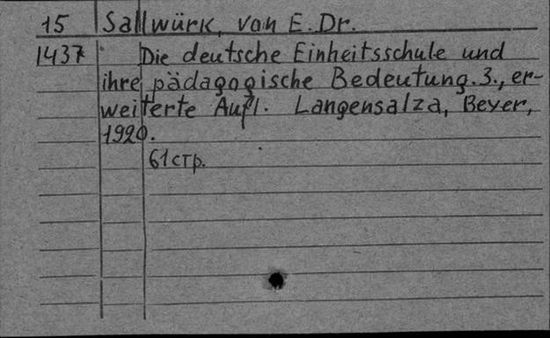 15 Sallwürk, von E. Dr.
1437 Die deutsche Einheitsschule und
ihre pädagogische Bedeutung. 3., er-
weiterte Aufl. Langensalza, Beyer,
1920.
61 стр.